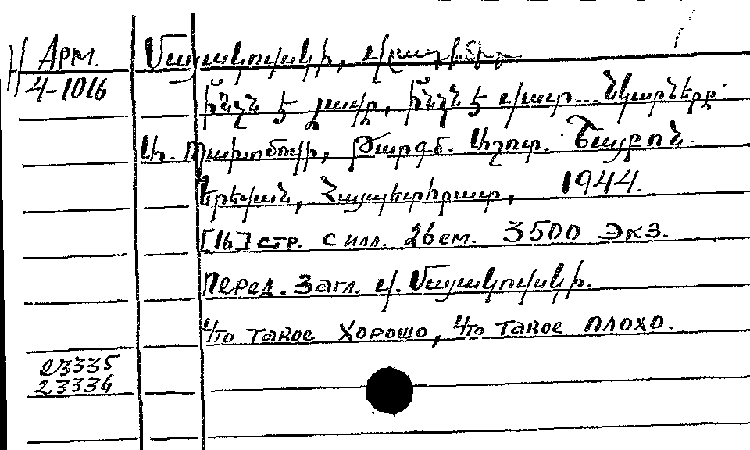 Арм.
4-1016
Մայակովսկի, Վլադիմիր
Ի՞նչն է լավը, ի՞նչն է վատը... Նկարները
Ա. Թարգմ. Աշոտ Շայբոն.
Երևան, Հայպետհրատ, 1944.
[16] стр. с илл. 26 см. 3500 экз.
Перед. загл. Վ. Մայակովսկի.
Что такое хорошо, что такое плохо.
23335
23336